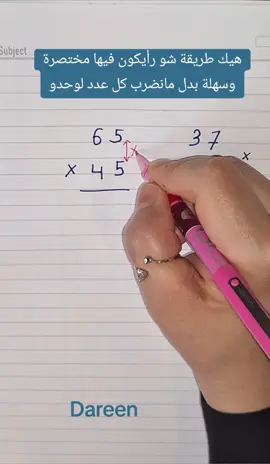 هيك طريقة شو رأيكون فيها مختصرة
وسهلة بدل مانضرب كل عدد لوحدو
Subject
65 37
x 45 x
x
Dareen